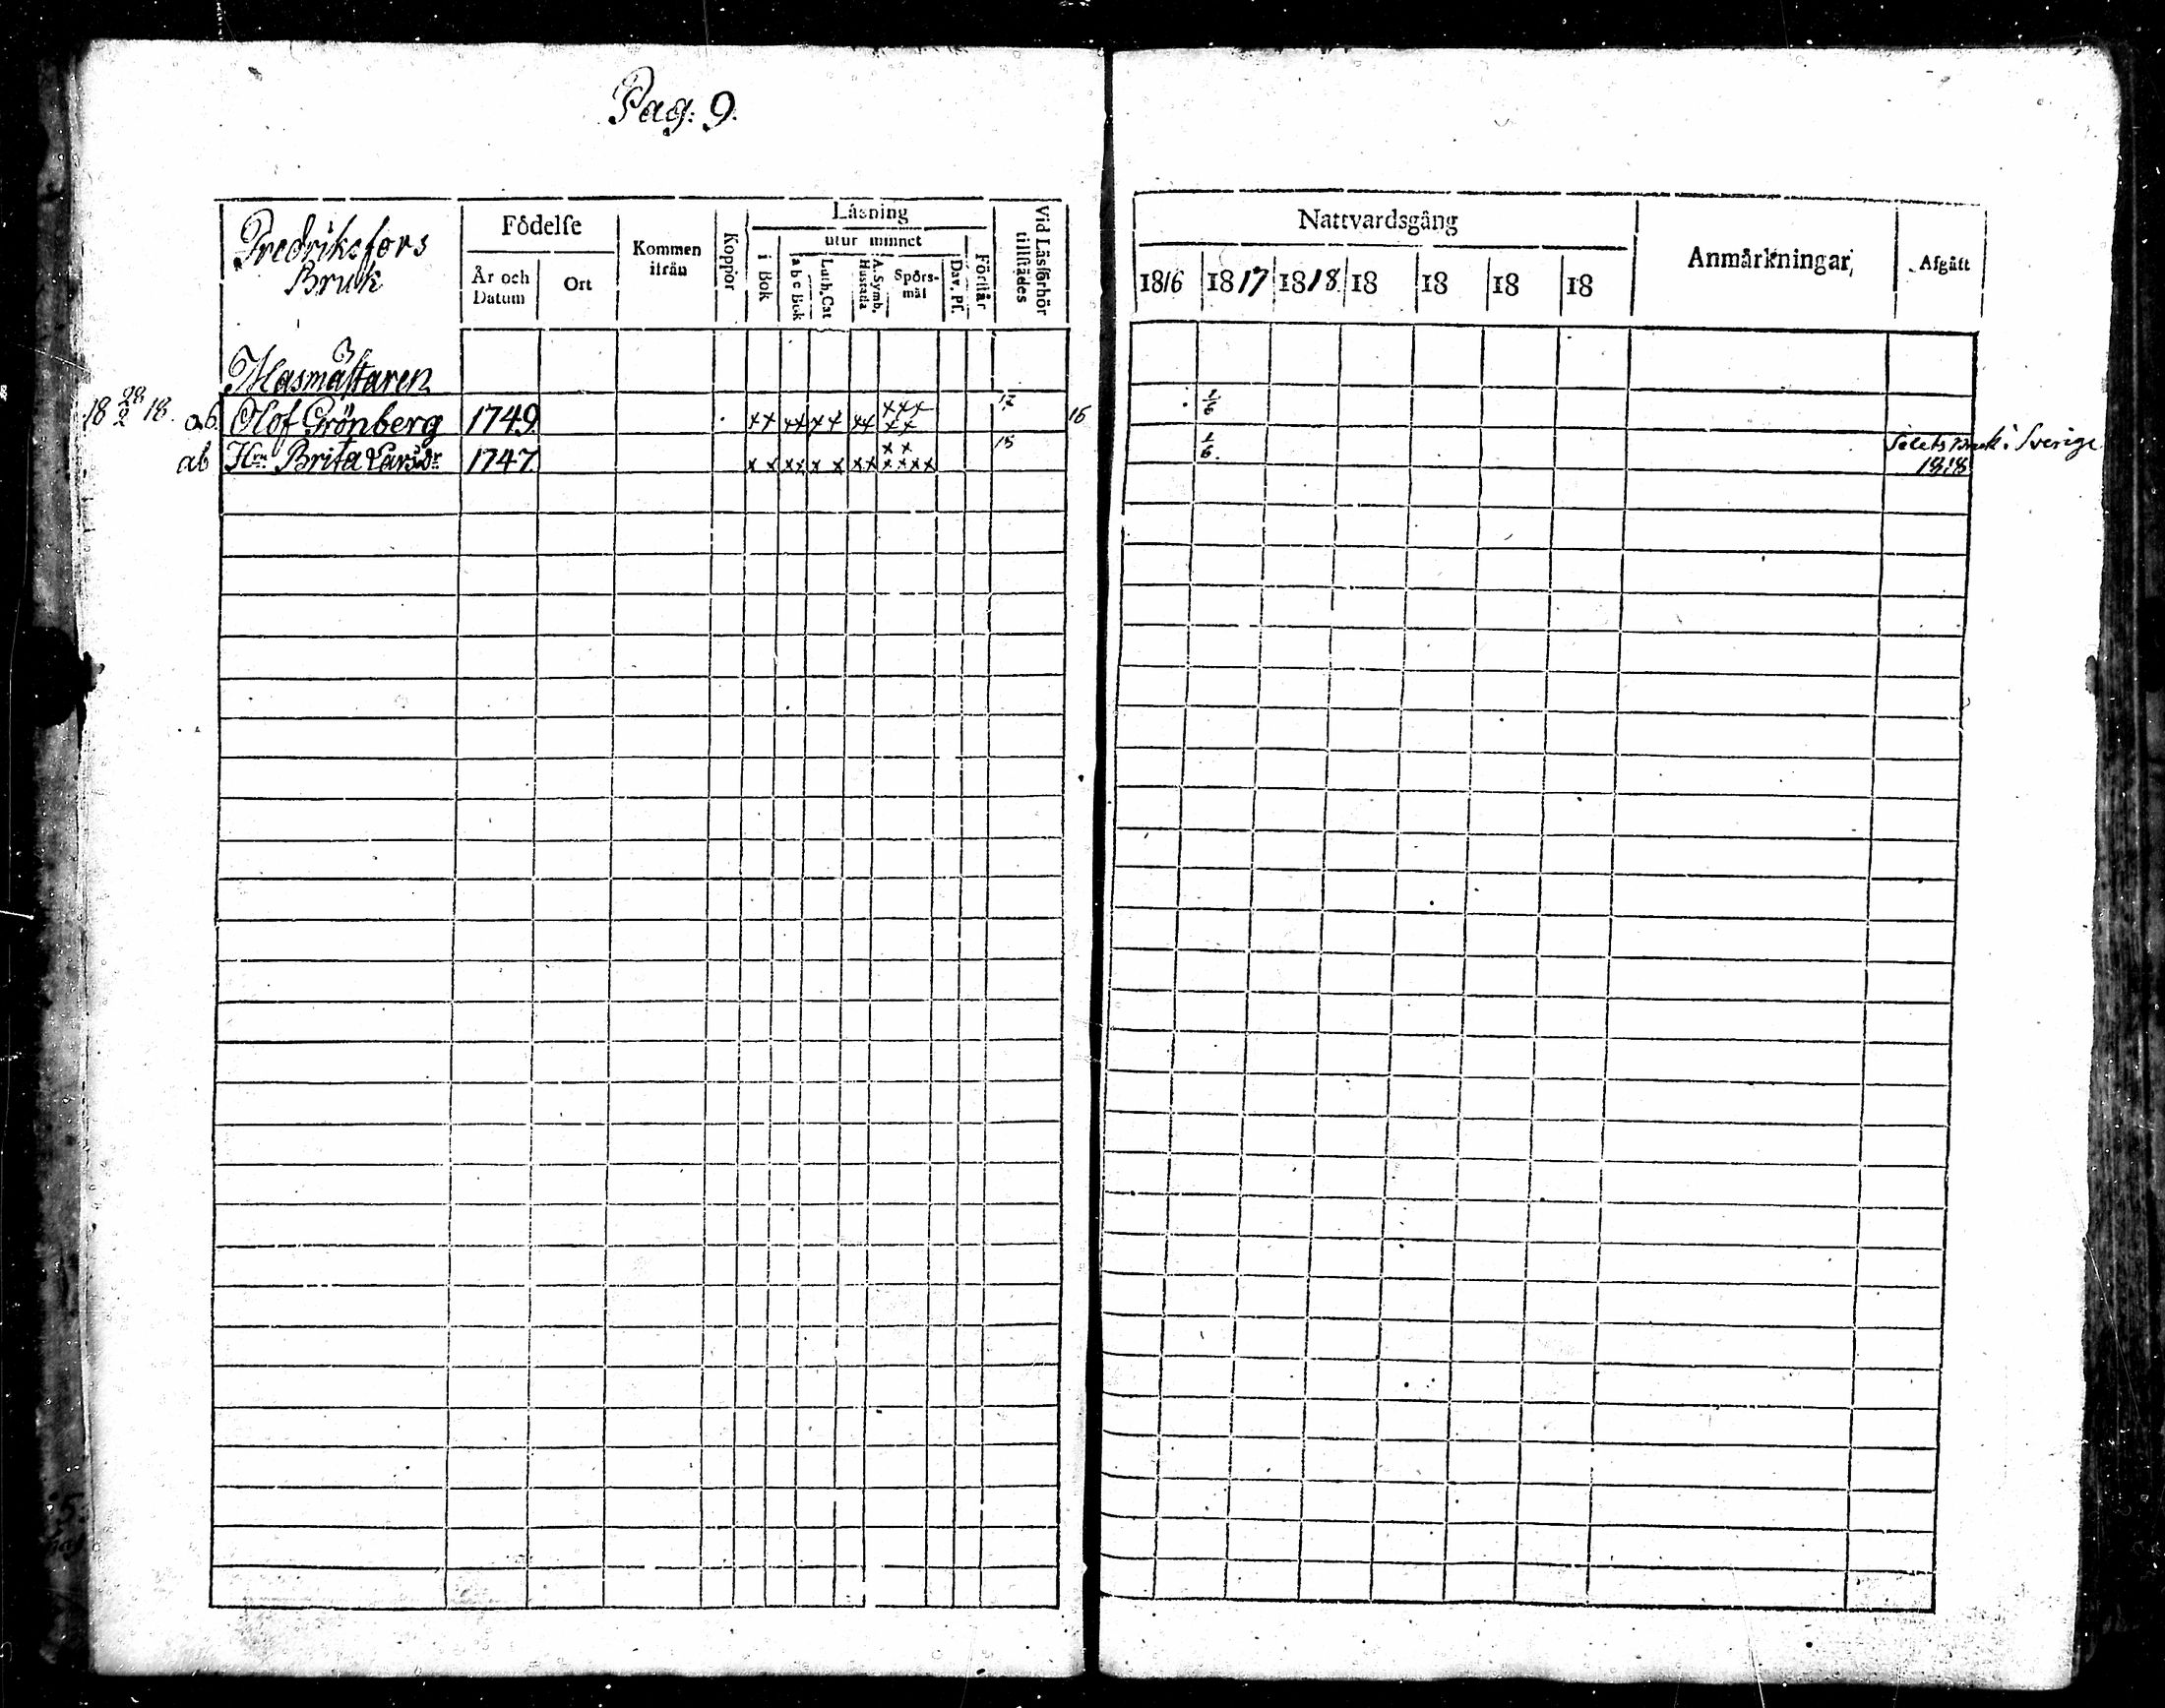 Pag. 9.
Fredriksfors
Bruk
Födelse
År och
Datum
Ort
Kommen
ifrån
Koppor
Läsning
i Bok
utur minnet
a b c Bok
Luth. Cat
A. Symb.
Hustafla
Spörs-
mål
Dav. Ps.
Förstår
Vid Läsförhör
tillstädes
Nattvardsgång
1816 1817 1818 18 18 18 18
Anmärkningar
Afgått
Masmästaren
18 28/2 18. ab Olof Grönberg 1749 xx xx xx xx xxx xx 16 1/6
ab Hru Brita Larsdr 1747 xx xx xx xx xx xxxx 15 1/6.
bruk i Sverige
1818